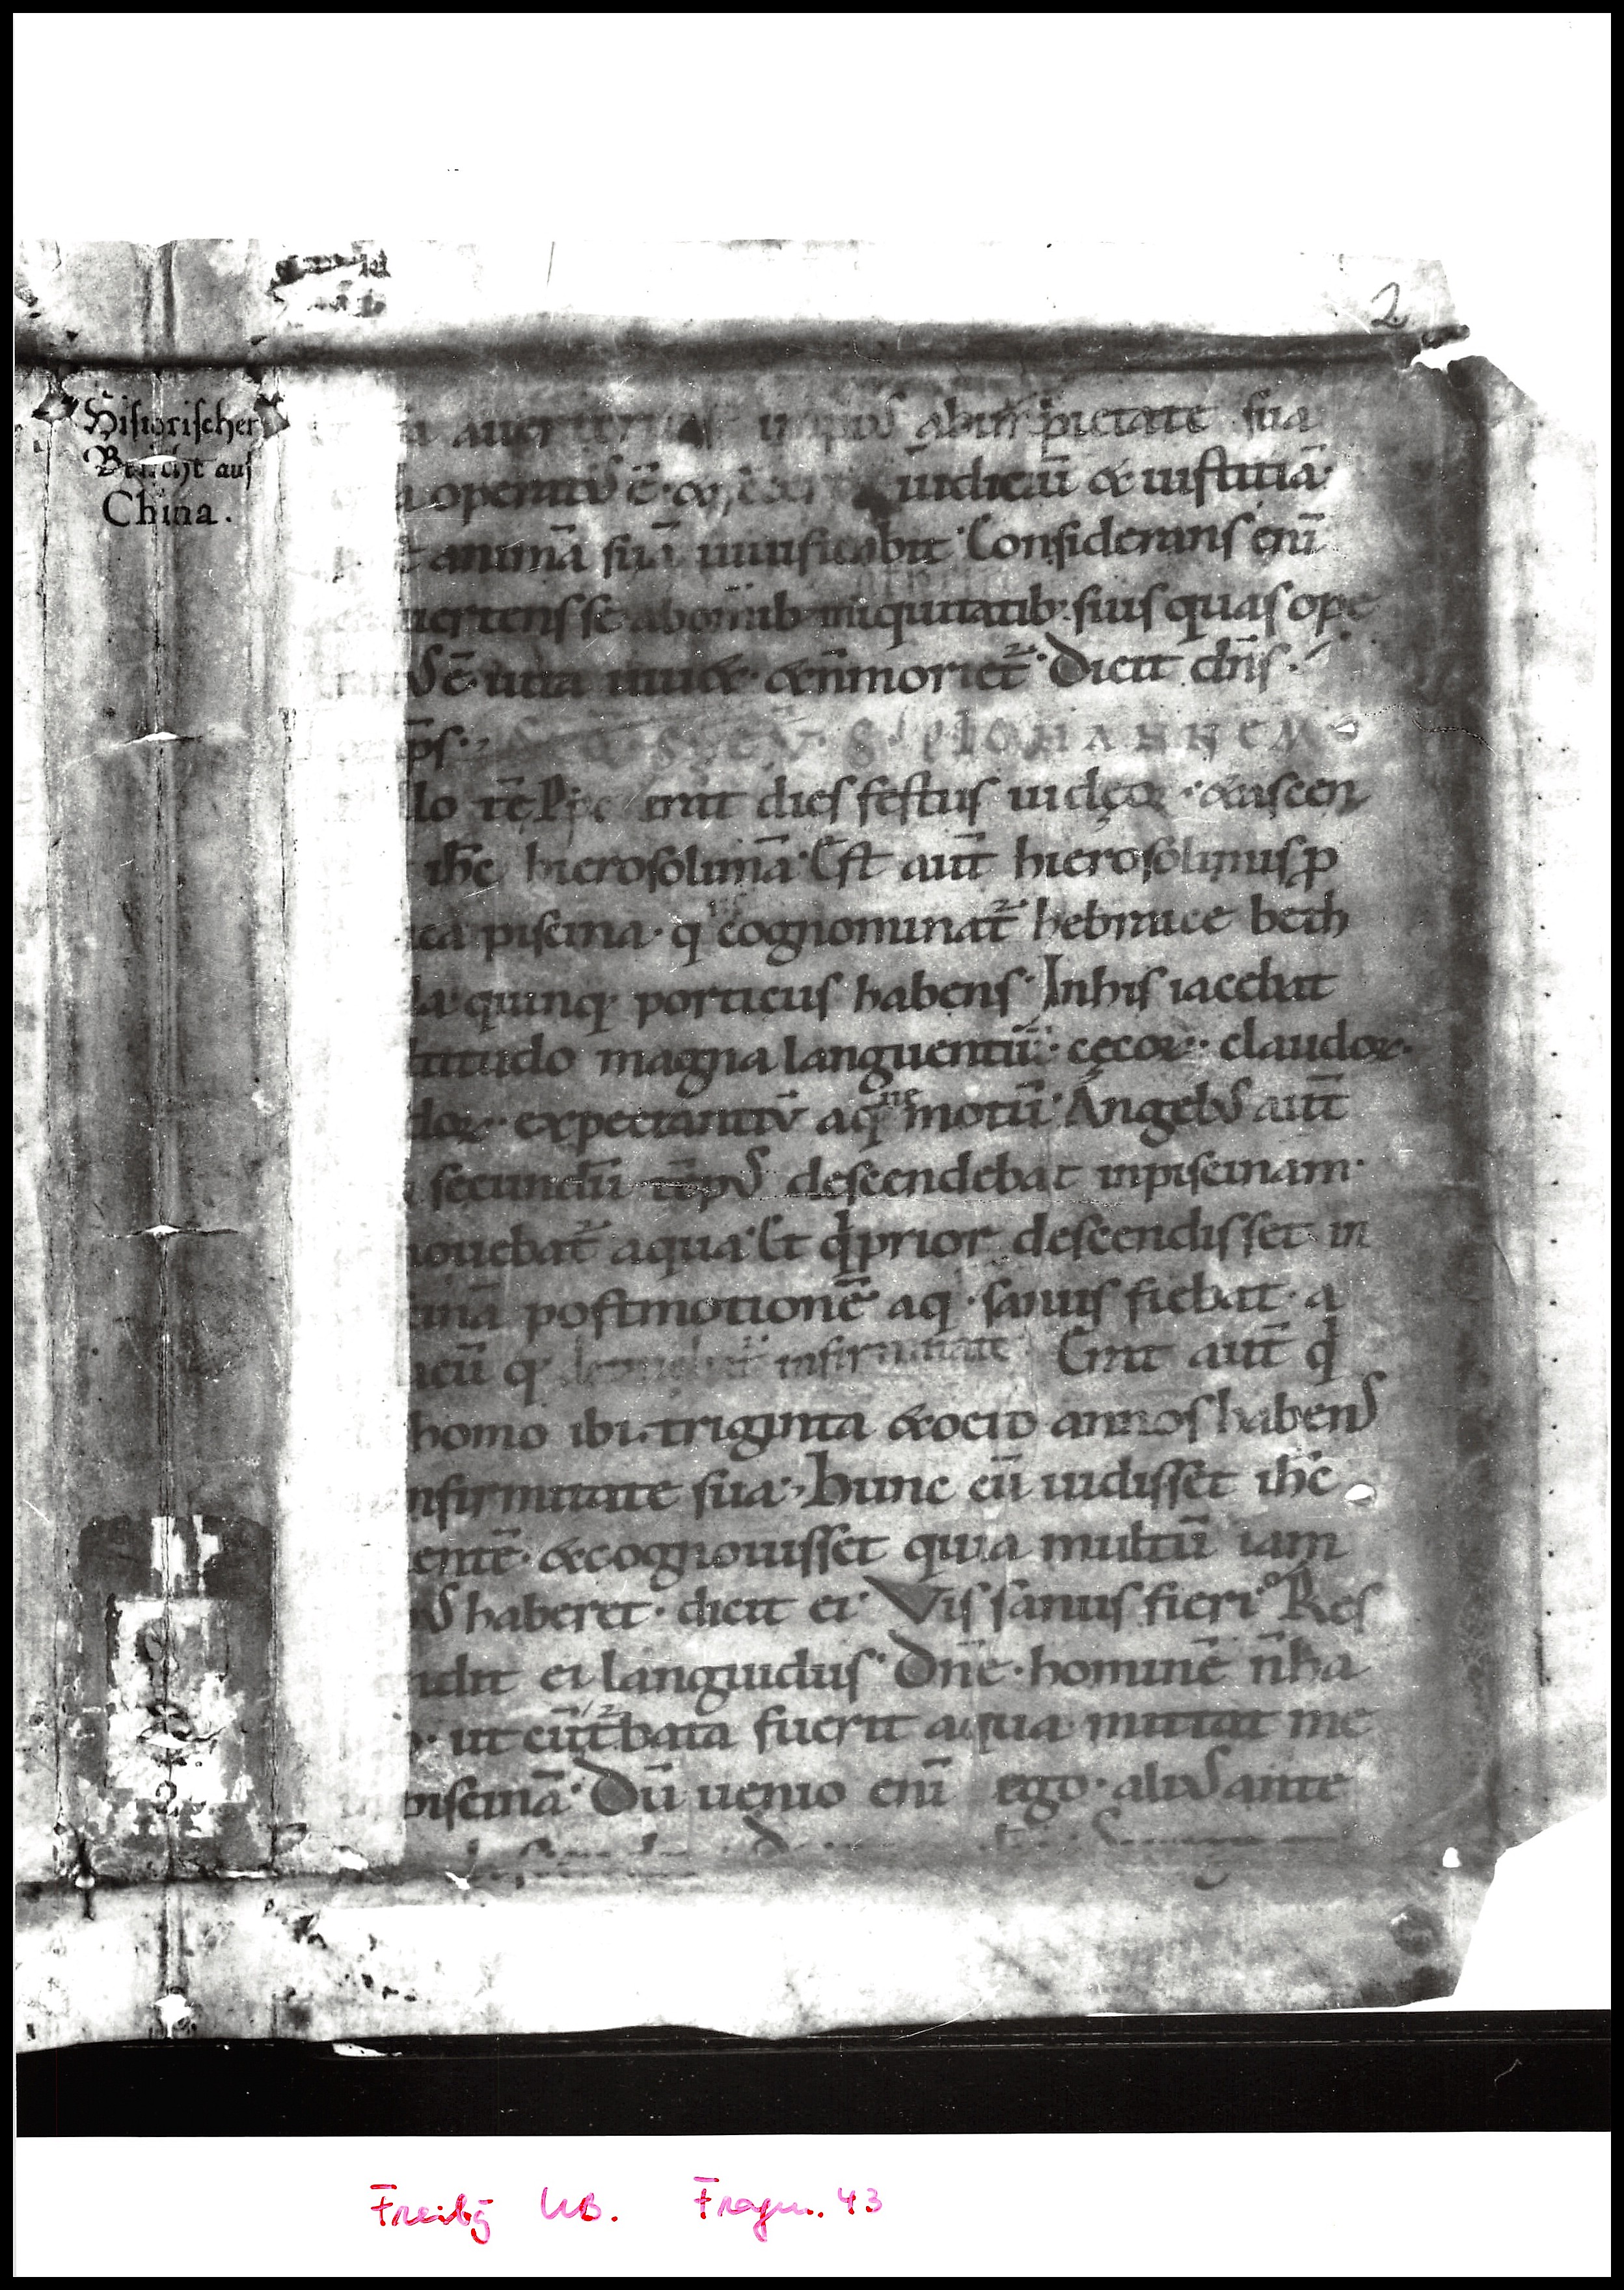 2
Historischer
Bericht aus
China.
impiꝰ ab impietate sua
operatꝰ ē· & iudiciū & iustitiā·
animā suā uiuificabit· Considerans enī
uertens se ab om̄ib· iniquitatib·· suis quas ope
ꝰ ē· uita uiu&· & n̄ moriet᷑· Dicit dn̄s·
IOHANNEM
lo tēp̄r erat dies festus iudęoꝝ· & ascen
ih̄c hierosolimā· Est aut̄ hierosolimis ꝓ
ica piscina· q cognominat᷑ hebraice beth
da· quinq· porticus habens· In his iacebat
titudo magna languentiū· cęcoꝝ· claudoꝝ·
doꝝ· expectantiū aq motū· Angelꝰ aut̄
secundū tēpꝰ descendebat inpiscinam·
ouebat᷑ aqua· Et q prior descendisset in
cinā post motionē aq· sanus fiebat· a
cū q detinebat᷑ infirmitate· Erat aut̄ q
homo ibi· triginta & octo annos habenſ
nfirmitate sua· Hunc cū uidisset ih̄c
entē· & cognouisset quia multū iam
ꝰ haberet· dicit ei· Vis sanus fieri· Res
ndit ei languidus· Dn̄e· hominē n̄ ha
o· ut cū t᷑bata fuerit aqua mittat me
piscinā· Dū uenio enī ego· aliꝰ ante
Freibg UB. Fragm. 43